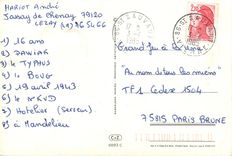 MARIOT André
Jassay de Chenay 79120
LEZAY
1) 16 ans
2) DAWIAK
3) le TYPHUS
4) le BOUG
5) 19 avril 1943
6) le NKVD
7) Hotelier (Serveur)
8) à Mandelieu
Grand Jeu la Voyance
"Au nom de tous les miens"
TF1 Cedex 1504
75815 PARIS BRUNE